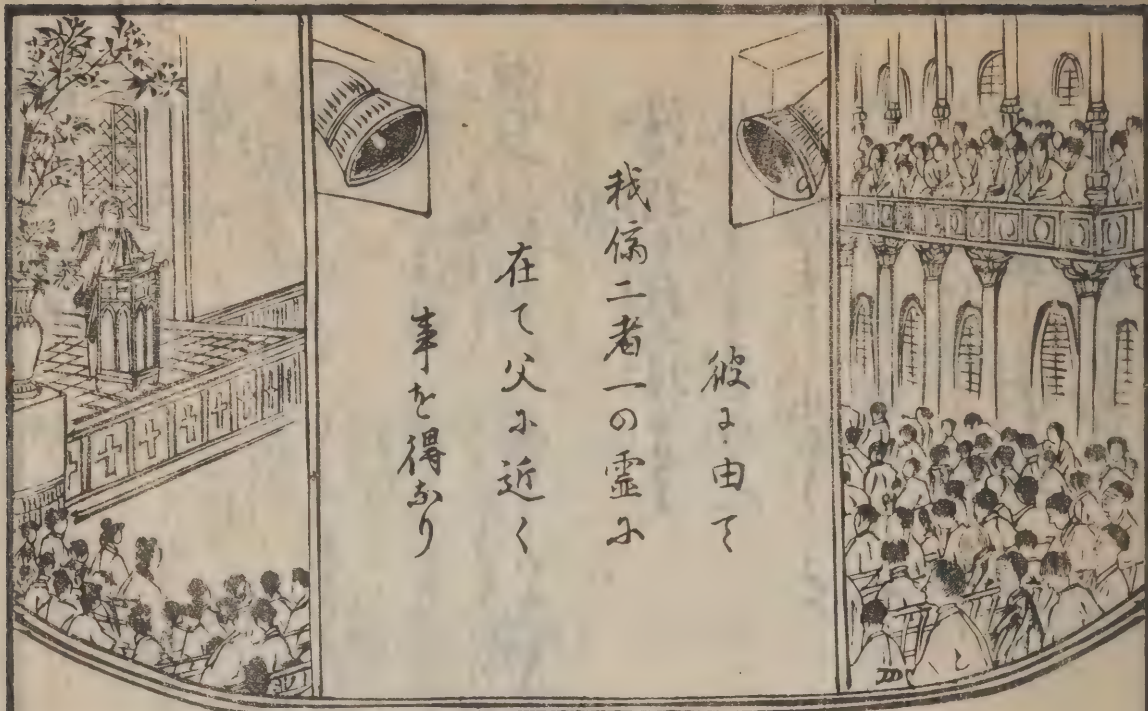 彼に由て
我儕二者一の霊に
在て父に近く
事を得なり